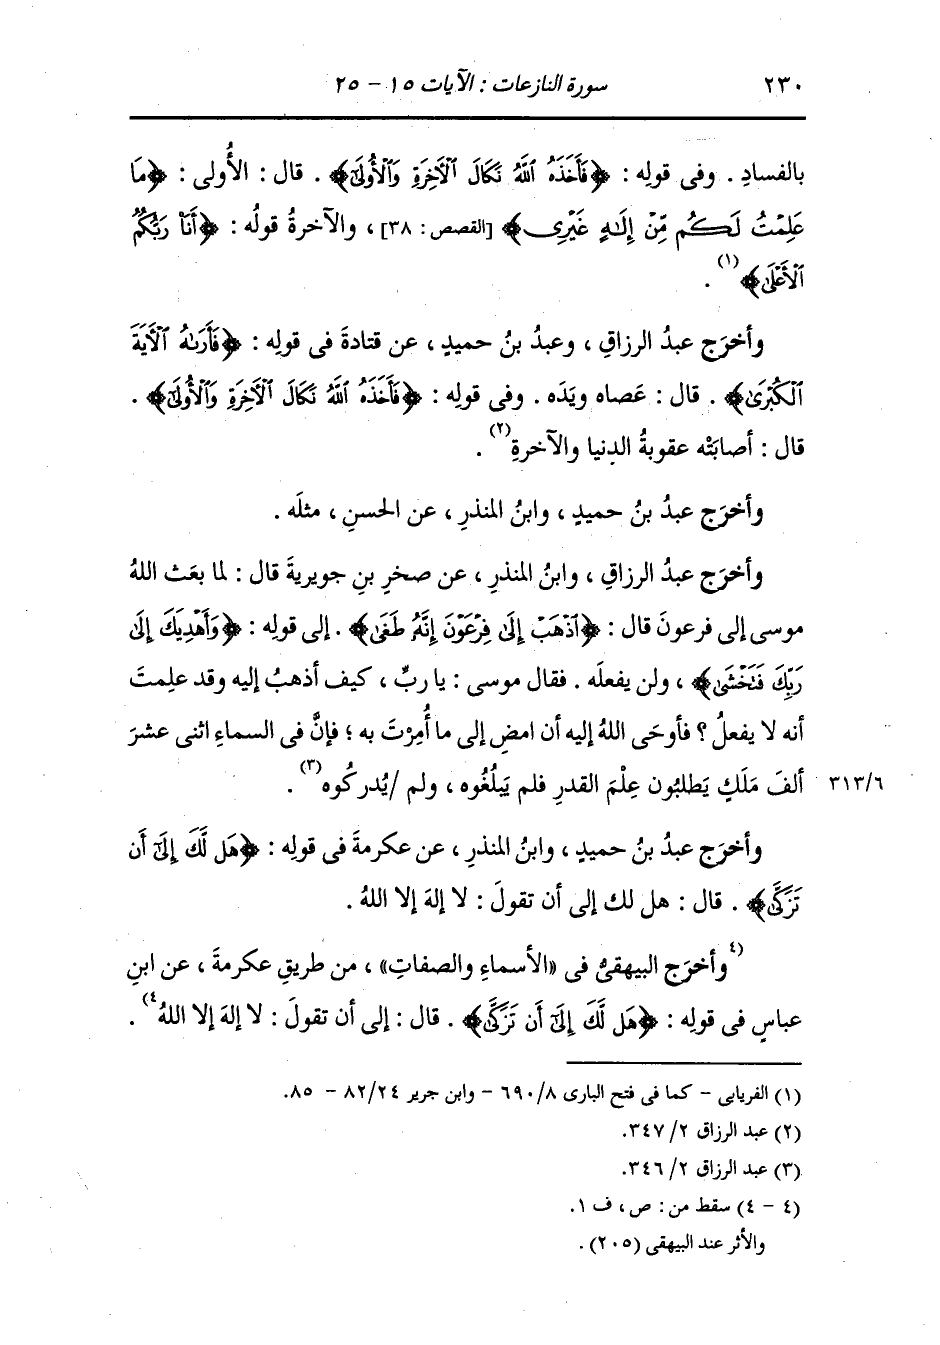 ٢٣٠ سورة النازعات : الآيات ١٥ - ٢٥
بالفسادِ . وفى قولِه : ﴿فَأَخَذَهُ ٱللَّهُ نَكَالَ ٱلْأَخِرَةِ وَٱلْأُولَىٰٓ﴾ . قال : الأُولى : ﴿مَا
عَلِمْتُ لَكُم مِّنْ إِلَٰهٍ غَيْرِى﴾ [القصص : ٣٨] ، والآخرةُ قولُه : ﴿أَنَا۠ رَبُّكُمُ
ٱلْأَعْلَىٰ﴾(١) .
وأخرَج عبدُ الرزاقِ ، وعبدُ بنُ حميدٍ ، عن قتادةَ فى قولِه : ﴿فَأَرَىٰهُ ٱلْأَيَةَ
ٱلْكُبْرَىٰ﴾ . قال : عَصاه ويَدَه . وفى قولِه : ﴿فَأَخَذَهُ ٱللَّهُ نَكَالَ ٱلْأَخِرَةِ وَٱلْأُولَىٰٓ﴾ .
قال : أصابَتْه عقوبةُ الدنيا والآخرةِ(٢) .
وأخرَج عبدُ بنُ حميدٍ ، وابنُ المنذرِ ، عن الحسنِ ، مثلَه .
وأخرَج عبدُ الرزاقِ ، وابنُ المنذرِ ، عن صخرِ بنِ جويريةَ قال : لما بعَث اللهُ
موسى إلى فرعونَ قال : ﴿ٱذْهَبْ إِلَىٰ فِرْعَوْنَ إِنَّهُۥ طَغَىٰ﴾ . إلى قولِه : ﴿وَأَهْدِيَكَ إِلَىٰ
رَبِّكَ فَتَخْشَىٰ﴾ ، ولن يفعلَه . فقال موسى : يا ربِّ ، كيف أذهبُ إليه وقد علِمتَ
أنه لا يفعلُ ؟ فأوحَى اللهُ إليه أن امضِ إلى ما أُمِرْتَ به ؛ فإنَّ فى السماءِ اثنى عشرَ
ألفَ مَلَكٍ يَطلبُون عِلْمَ القدرِ فلم يَبلُغُوه ، ولم /يُدركُوه(٣) . ٣١٣/٦
وأخرَج عبدُ بنُ حميدٍ ، وابنُ المنذرِ ، عن عكرمةَ فى قولِه : ﴿هَل لَّكَ إِلَىٰٓ أَن
تَزَكَّىٰ﴾ . قال : هل لك إلى أن تقولَ : لا إلهَ إلا اللهُ .
(٤وأخرَج البيهقىُّ فى «الأسماءِ والصفاتِ» ، من طريقِ عكرمةَ ، عن ابنِ
عباسٍ فى قولِه : ﴿هَل لَّكَ إِلَىٰٓ أَن تَزَكَّىٰ﴾ . قال : إلى أن تقولَ : لا إلهَ إلا اللهُ٤) .
(١) الفريابى - كما فى فتح البارى ٦٩٠/٨ - وابن جرير ٨٢/٢٤ - ٨٥.
(٢) عبد الرزاق ٣٤٧/٢.
(٣) عبد الرزاق ٣٤٦/٢.
(٤ - ٤) سقط من : ص ، ف ١.
والأثر عند البيهقى (٢٠٥) .